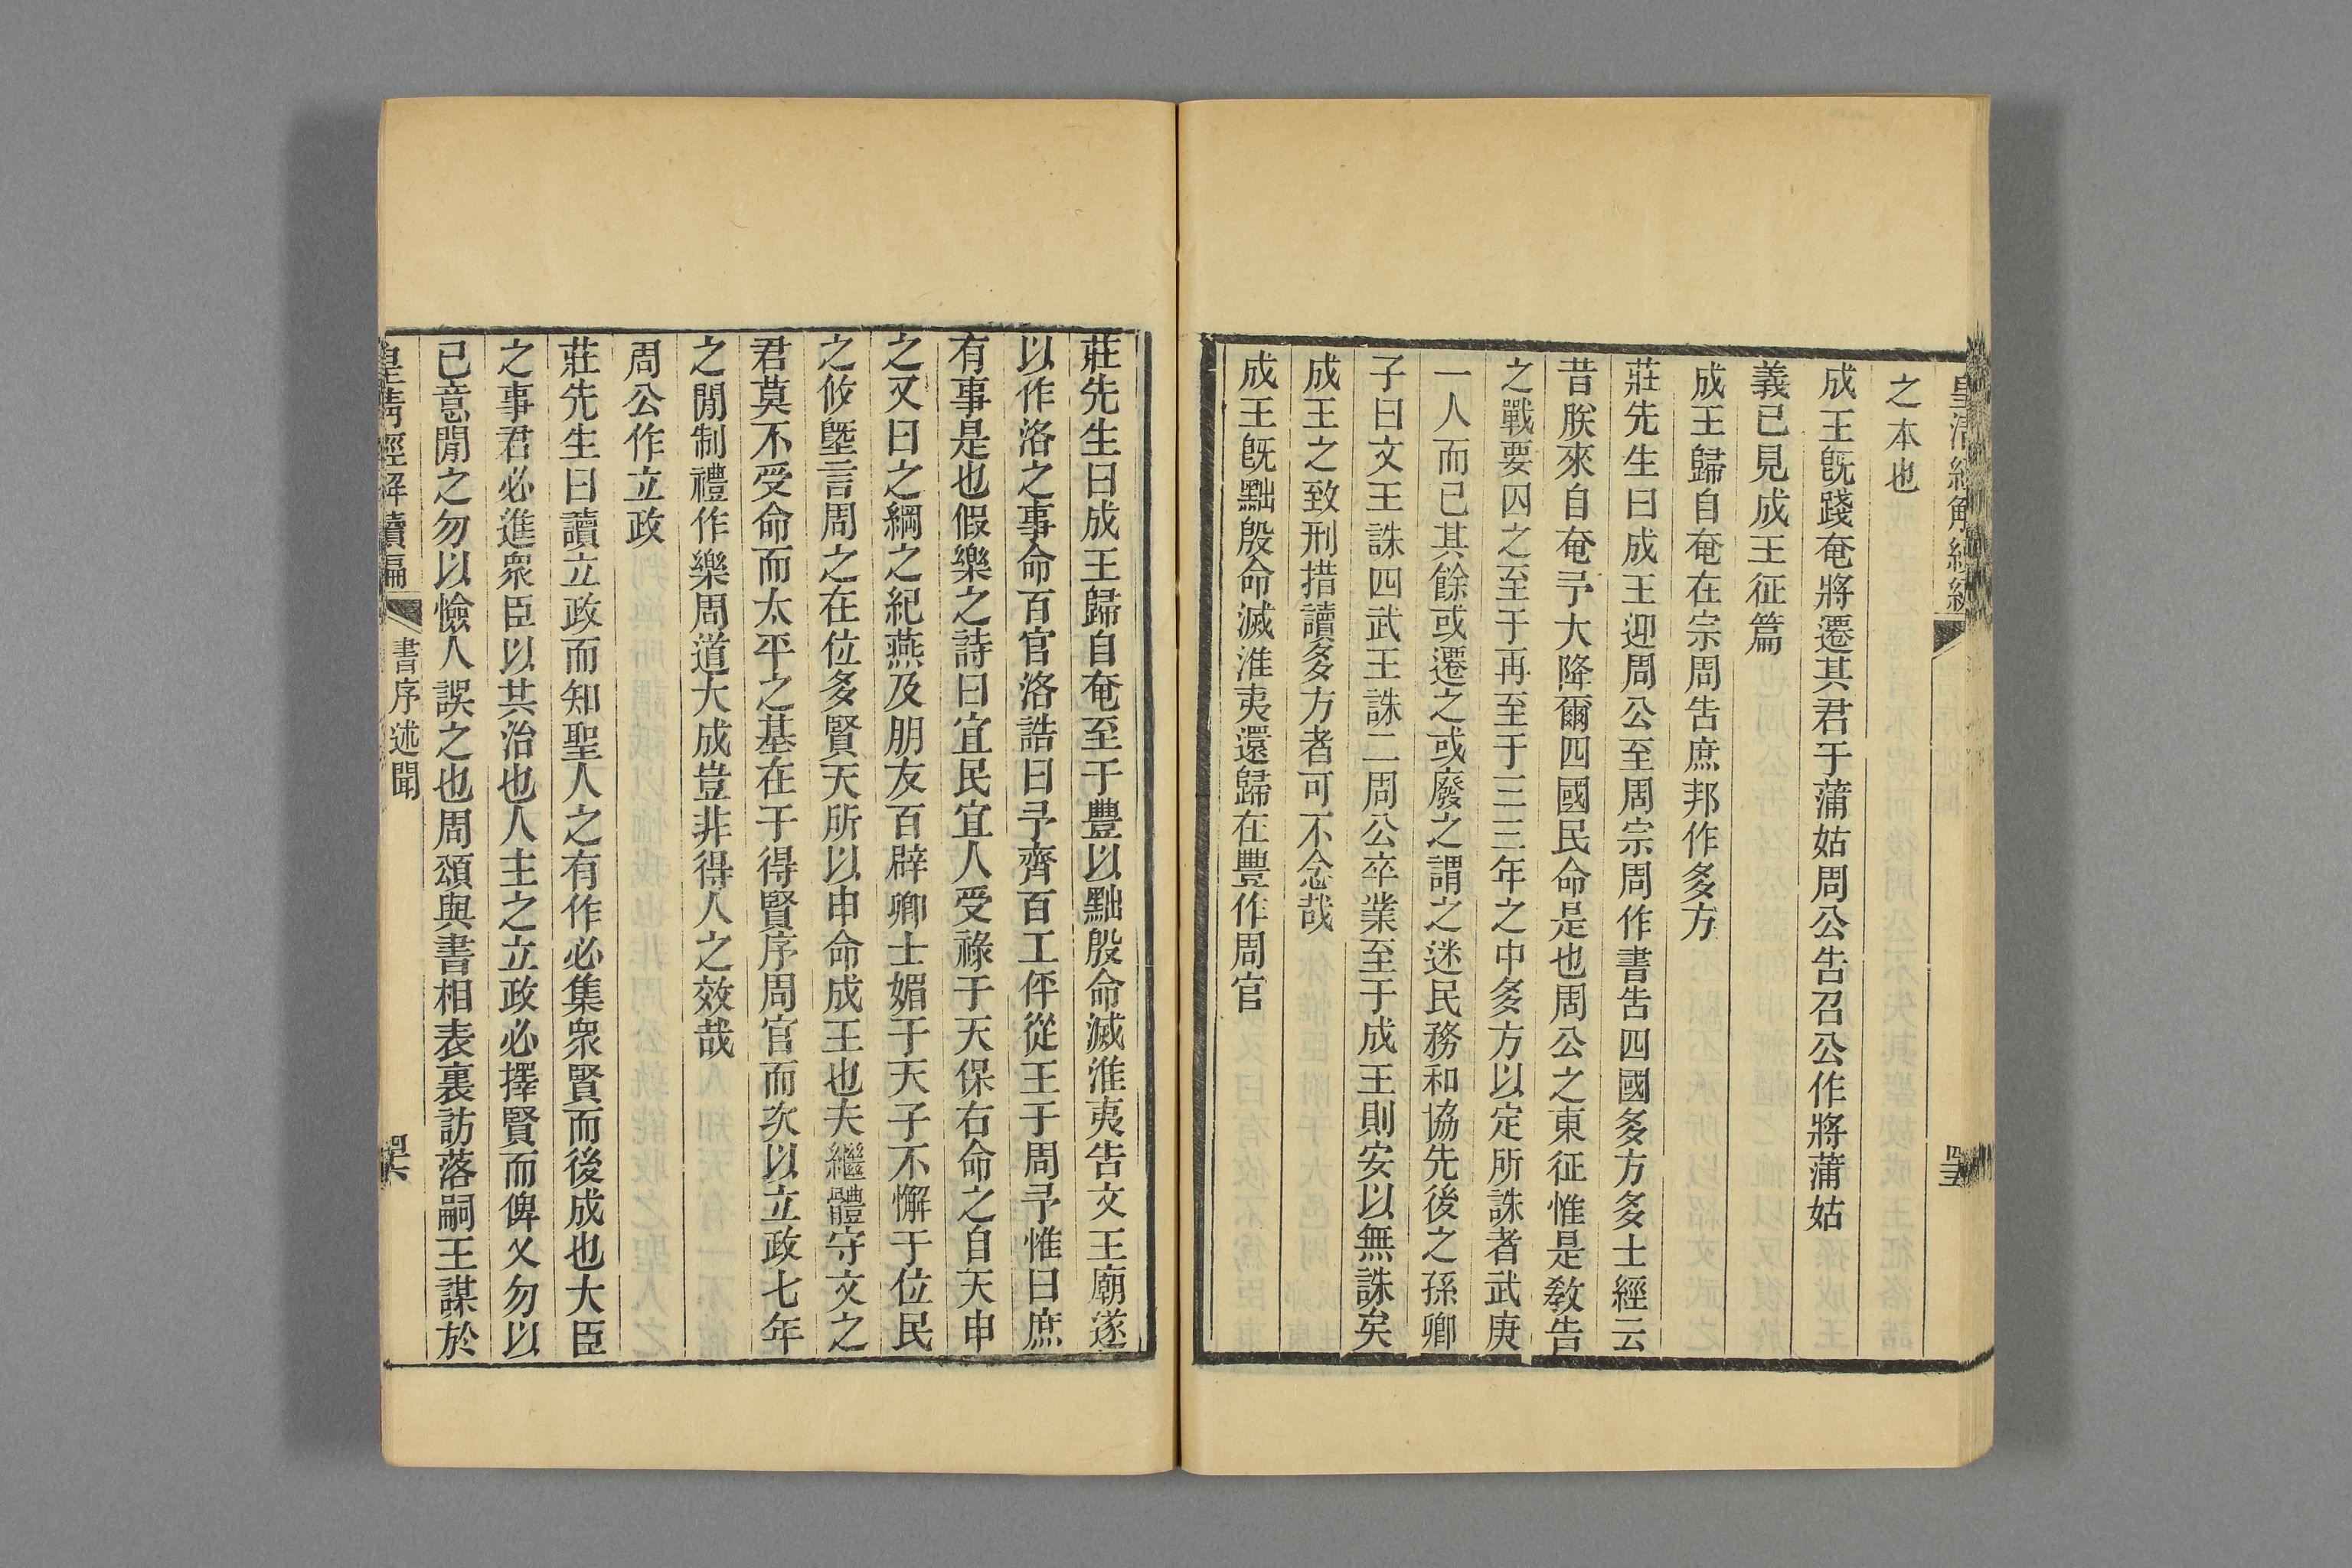 皇清經解續編
之本也
成王旣踐奄將遷其君于蒲姑周公告召公作將蒲姑
義已見成王征篇
成王歸自奄在宗周告庶邦作多方
莊先生曰成王迎周公至周宗周作書告四國多方多士經云
昔朕來自奄予大降爾四國民命是也周公之東征惟是敎告
之戰要囚之至于再至于三三年之中多方以定所誅者武庚
一人而已其餘或遷之或廢之謂之迷民務和協先後之孫卿
子曰文王誅四武王誅二周公卒業至于成王則安以無誅矣
成王之致刑措讀多方者可不念哉
成王旣黜殷命滅淮夷還歸在豐作周官
莊先生曰成王歸自奄至于豐以黜殷命滅淮夷告文王廟遂
以作洛之事命百官洛誥曰予齊百工伻從王于周予惟曰庶
有事是也假樂之詩曰宜民宜人受祿于天保右命之自天申
之又曰之綱之紀燕及朋友百辟卿士媚于天子不懈于位民
之攸塈言周之在位多賢天所以申命成王也夫繼體守文之
君莫不受命而太平之基在于得賢序周官而次以立政七年
之閒制禮作樂周道大成豈非得人之效哉
周公作立政
莊先生曰讀立政而知聖人之有作必集衆賢而後成也大臣
之事君必進衆臣以共治也人主之立政必擇賢而俾乂勿以
已意閒之勿以憸人誤之也周頌與書相表裏訪落嗣王謀於
皇淸經解續編
書序述聞